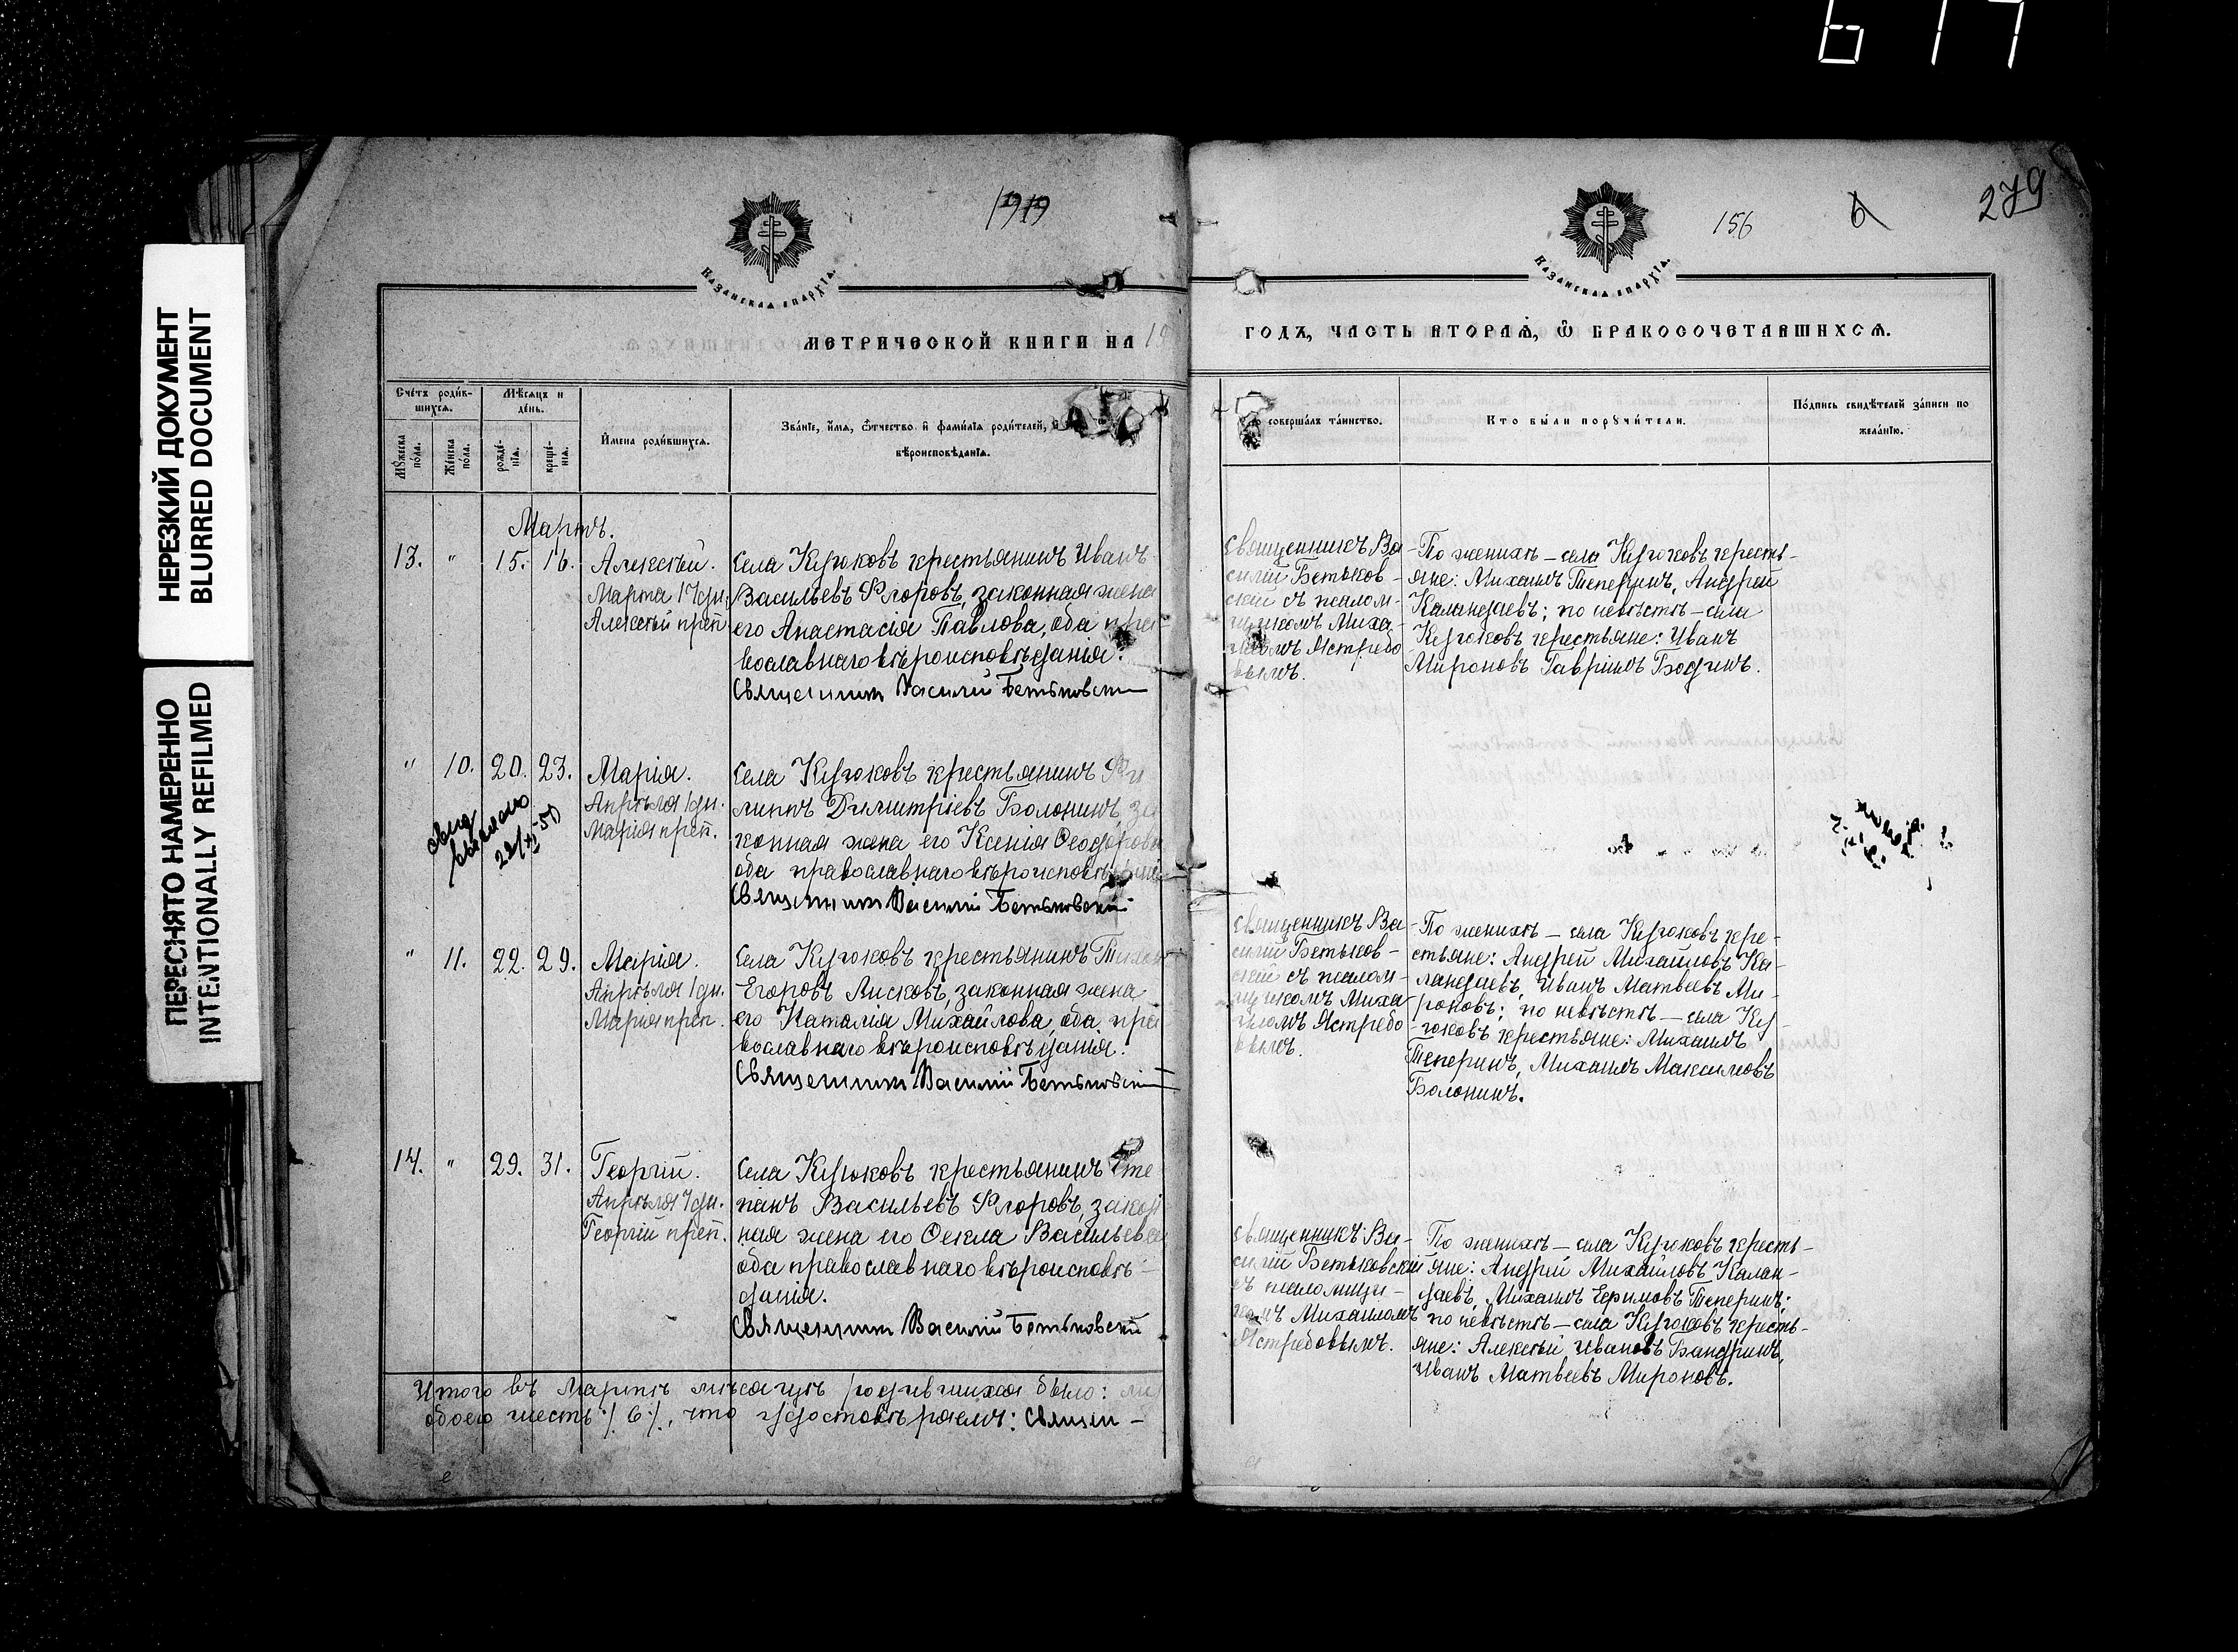 617
НЕРЕЗКИЙ ДОКУМЕНТ
BLURRED DOCUMENT
ПЕРЕСНЯТО НАМЕРЕННО
INTENTIONALLY REFILMED
1919
КАЗАНСКАЯ ЕПАРХІА.
МЕТРИЧЕСКОЙ КНИГИ НА 19
Счетъ родив-
шихся.
Мѣсяцъ и
день.
Мужеска
пола.
Женска
пола.
рожде-
нія.
креще-
нія.
Имена родившихся.
Званіе, имя, отчество и фамилія родителей, и
вѣроисповѣданія.
Мартъ.
13. " 15. 16. Алексѣй.
Марта 17 дн.
Алексѣй преп.
Села Кугюковъ крестьянинъ Иванъ
Васильевъ Флоровъ, законная жена
его Анастасія Павлова, оба пра-
вославнаго вѣроисповѣданія.
Священник Василий Бетьковский
" 10. 20. 23. Марія.
Апрѣля 1 дн.
Марія преп.
выслано
22/XI 50
Села Кугюковъ крестьянинъ Фи
липпъ Димитріевъ Болонинъ, за
конная жена его Ксенія Ѳеодорова
оба православнаго вѣроисповѣданія
Священник Василий Бетьковский
" 11. 22. 29. Марія.
Апрѣля 1 дн.
Мария преп.
Села Кугюковъ крестьянинъ Тихонъ
Егоровъ Лисковъ, законная жена
его Наталія Михайлова, оба пра
вославнаго вѣроисповѣданія.
Священник Василий Бетьковский
14. " 29. 31. Георгій.
Апрѣля 4 дн.
Георгій преп.
Села Кугюковъ крестьянинъ Сте
панъ Васильевъ Флоровъ, закон
ная жена его Ѳекла Васильева
оба православнаго вѣроисповѣ-
данія.
Священник Василий Бетьковский
Итого въ Мартѣ мѣсяцѣ родившихся было:
обоего шесть /.6/., что удостовѣряемъ: Священ-
156
6
279
КАЗАНСКАЯ ЕПАРХІА.
ГОДЪ, ЧАСТЬ ВТОРАЯ, Ѡ БРАКОСОЧЕТАВШИХСЯ.
совершалъ таинство.
Кто были поручители.
Подпись свидѣтелей записи по
желанію.
Священникъ Ва-
силій Бетьков-
скій съ псалом-
щикомъ Миха-
иломъ Ястребо
вымъ.
По женихѣ – села Кугюковъ кресть-
яне: Михаилъ Теперинъ, Андрей
Каландаевъ; по невѣстѣ – села
Кугюковъ крестьяне: Иванъ
Мироновъ Гавріилъ Бодринъ.
Священникъ Ва-
силій Бетьков-
скій съ псалом-
щикомъ Миха-
иломъ Ястребо
вымъ.
По женихѣ – села Кугюковъ кре-
стьяне: Андрей Михайловъ Ка-
ландаевъ, Иванъ Матвеевъ Ми-
роновъ; по невѣстѣ – села Куг-
юковъ крестьяне: Михаилъ
Теперинъ, Михаилъ Максимовъ
Болонинъ.
Священникъ Ва-
силій Бетьковскій
съ псаломщи-
комъ Михаиломъ
Ястребовымъ.
По женихѣ – села Кугюковъ кресть-
яне: Андрей Михайловъ Калан-
даевъ, Михаилъ Ефимовъ Теперинъ;
по невѣстѣ – села Кугюковъ кресть-
яне: Алексѣй Ивановъ Бандринъ,
Иванъ Матвеевъ Мироновъ.